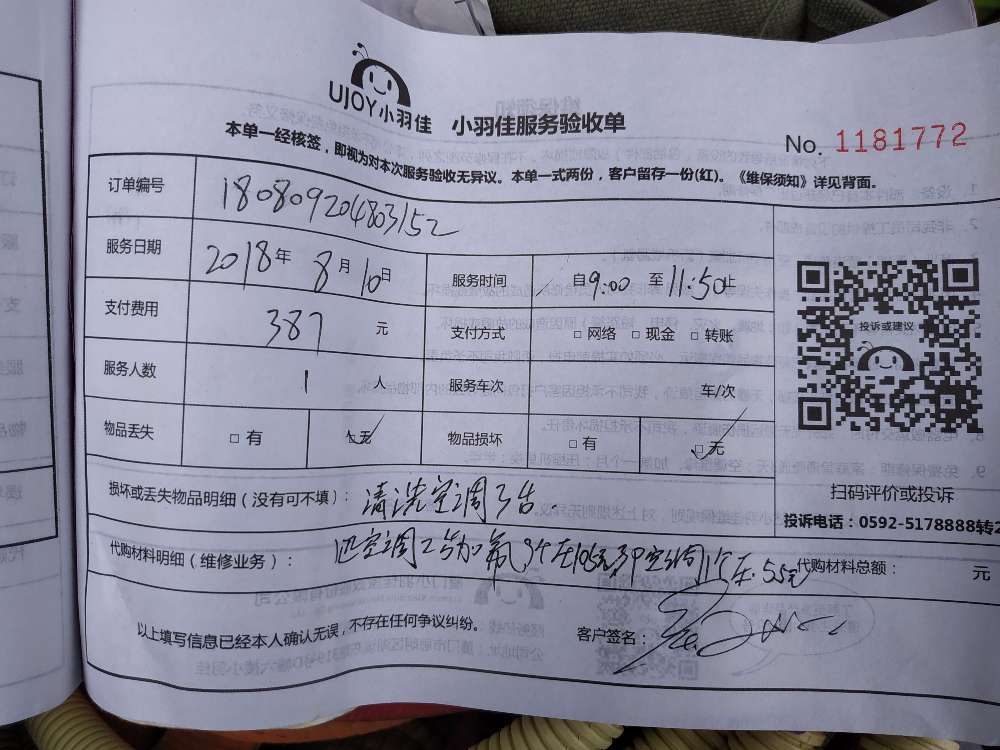 UJOY小羽佳 小羽佳服务验收单
No. 1181772
本单一经核签，即视为对本次服务验收无异议。本单一式两份，客户留存一份(红)。《维保须知》详见背面。
订单编号 180809204803152
服务日期 2018年 8月10日 服务时间 自9:00 至11:50止
支付费用 387 元 支付方式 □ 网络 □ 现金 □ 转账
投诉或建议
服务人数 1 人 服务车次 车/次
物品丢失 □ 有 □ 无 物品损坏 □ 有 □ 无
扫码评价或投诉
损坏或丢失物品明细（没有可不填）： 清洗空调3台.
投诉电话：0592-5178888转2
代购材料明细（维修业务）： 空调 加氟 空调 55元
代购材料总额： 元
以上填写信息已经本人确认无误，不存在任何争议纠纷。 客户签名：